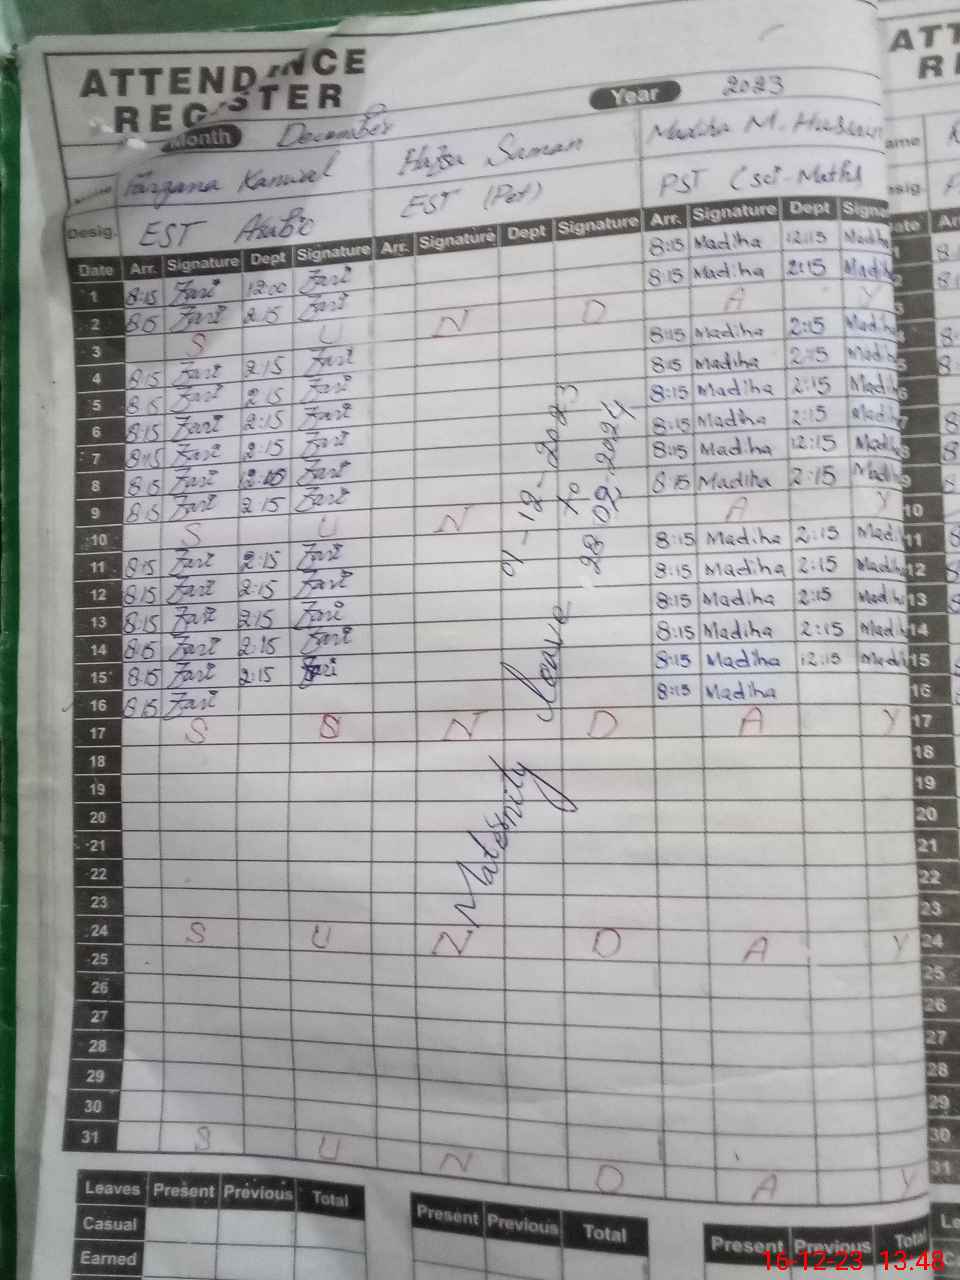 ATTENDANCE
REGISTER
Month December Year 2023
Fargana Kanwal Hafsa Saman Madiha M. Hussain
Desig. EST Arabic EST (Pet) PST (Sci-Math)
Date Arr. Signature Dept Signature Arr. Signature Dept Signature Arr. Signature Dept Signa
1 8:15 Zari 12:00 Zari 8:15 Madiha 12:15 Madiha
2 8:15 Zari 2:15 Zari 8:15 Madiha 2:15 Madiha
3 S U N D A Y
4 8:15 Zari 2:15 Zari 8:15 Madiha 2:15 Madiha
5 8:15 Zari 2:15 Zari 8:15 Madiha 2:15 Madiha
6 8:15 Zari 2:15 Zari 8:15 Madiha 2:15 Madiha
7 8:15 Zari 2:15 Zari 8:15 Madiha 2:15 Madiha
8 8:15 Zari Zari 8:15 Madiha 12:15 Madiha
9 8:15 Zari 2:15 Zari 8:15 Madiha 2:15 Madiha
10 S U N A Y 10
11 8:15 Zari 2:15 Zari 8:15 Madiha 2:15 Madi 11
12 8:15 Zari 2:15 Zari 8:15 Madiha 2:15 Madi 12
13 8:15 Zari 2:15 Zari 8:15 Madiha 2:15 Madih 13
14 8:15 Zari 2:15 Zari 8:15 Madiha 2:15 Madi 14
15 8:15 Zari 2:15 Zari 8:15 Madiha 12:15 Madi 15
16 8:15 Zari 8:15 Madiha 16
17 S S N D A Y 17
18 18
19 19
20 20
21 21
22 22
23 23
24 S U N D A Y 24
25 25
26 26
27 27
28 28
29 29
30 30
31 S U N D A Y 31
Maternity Leave
01-12-2023
to
28-02-2024
Leaves Present Previous Total Present Previous Total Present Previous Total
Casual
Earned
16-12-23 13.48